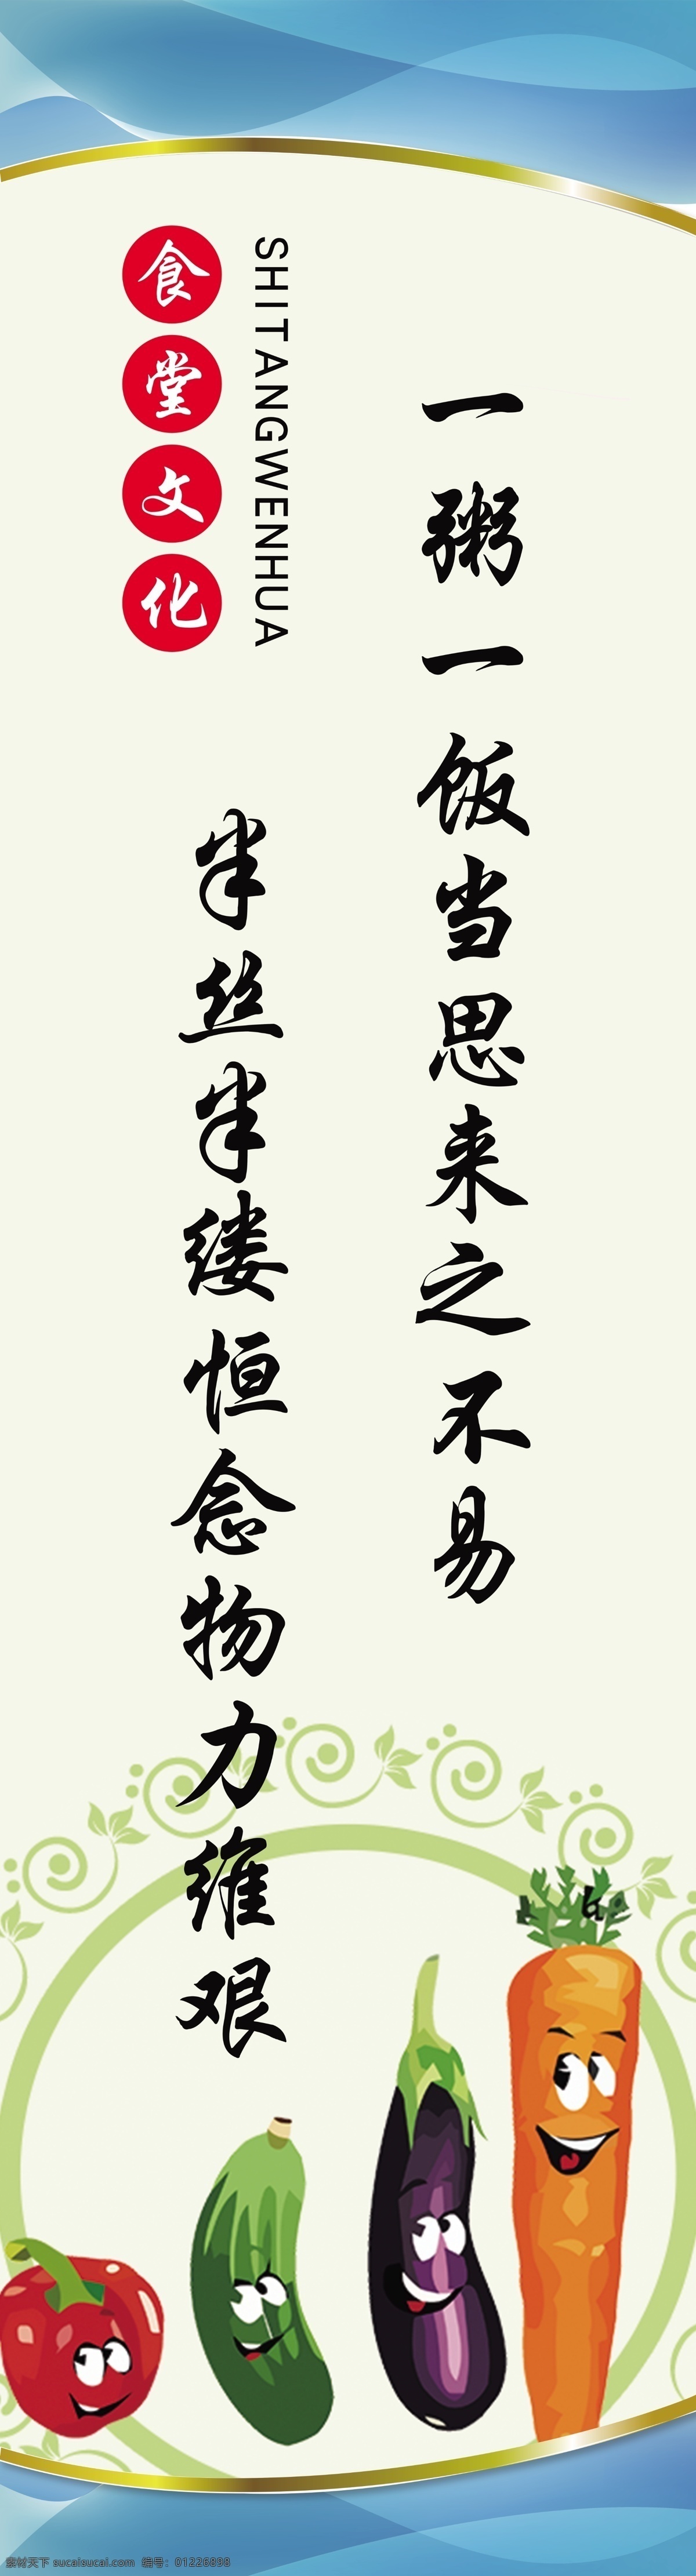 食堂文化
SHITANGWENHUA
一粥一饭当思来之不易
半丝半缕恒念物力维艰
素材天下 sucaisucai.com 编号：01226898